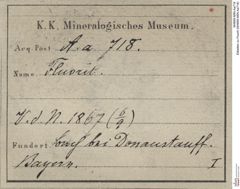 K. K. Mineralogisches Museum.
Acq. Post A. a 718.
Name Fluorit.
V. d. N. 1867 (6/9)
Fundort bach bei Donaustauff.
Bayern. I